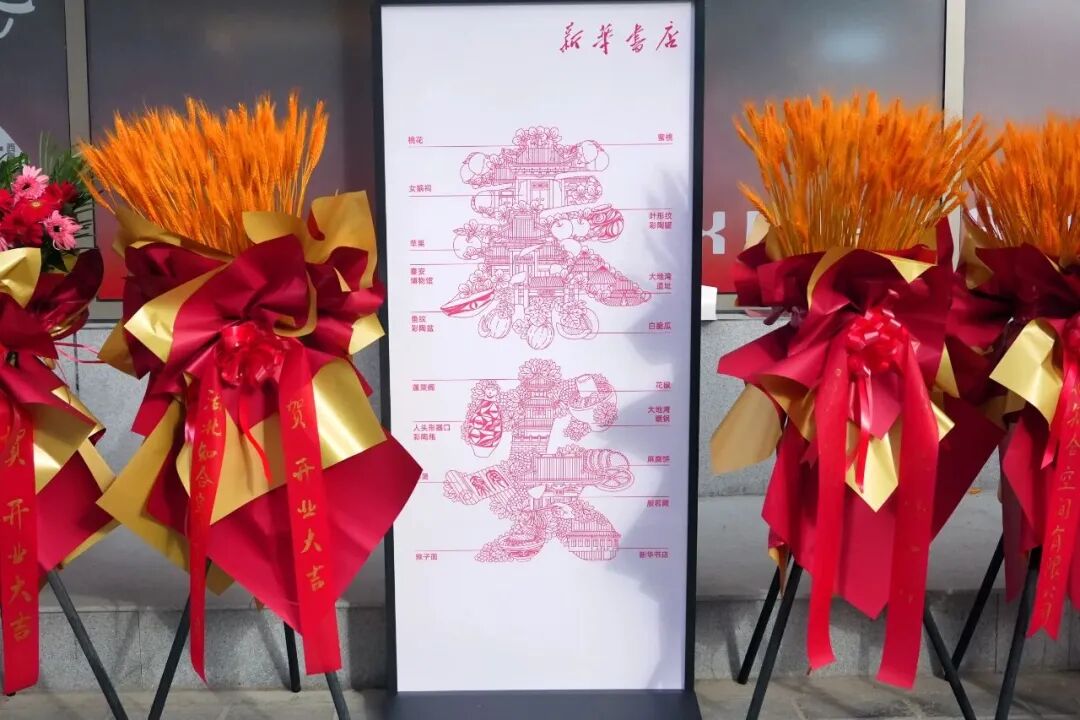 新华书店
桃花
蜜桃
女娲祠
叶形纹
彩陶罐
苹果
秦安
博物馆
大地湾
遗址
鱼纹
彩陶盆
白脆瓜
蓬莱阁
花椒
人头形器口
彩陶瓶
大地湾
麻腐饼
般若殿
辣子面
新华书店
贺开业大吉
贺开业大吉
空间有限公司